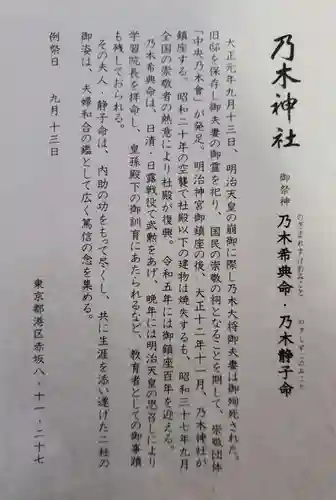 乃木神社
御祭神　乃木希典命・乃木静子命
のぎまれすけのみこと
のぎしずこのみこと
大正元年九月十三日、明治天皇の崩御に際し乃木大将御夫妻は御殉死された。
旧邸を保存し御夫妻の御霊を祀り、国民の崇敬の祠となることを期して、崇敬団体
「中央乃木會」が発足。明治神宮御鎮座の後、大正十二年十一月、乃木神社が
鎮座する。昭和二十年の空襲で社殿以下の建物は焼失するも、昭和三十七年九月
全国の崇敬者の熱意により社殿が復興。令和五年には御鎮座百年を迎える。
乃木希典命は、日清・日露戦役で武勲をあげ、晩年には明治天皇の思召しにより
学習院長を拝命し、皇孫殿下の御訓育にあたられるなど、教育者としての御事蹟
も残しておられる。
その夫人・静子命は、内助の功をもって尽くし、共に生涯を添い遂げた二柱の
御姿は、夫婦和合の鑑として広く篤信の念を集める。
例祭日　九月十三日
東京都港区赤坂八・十一・二十七